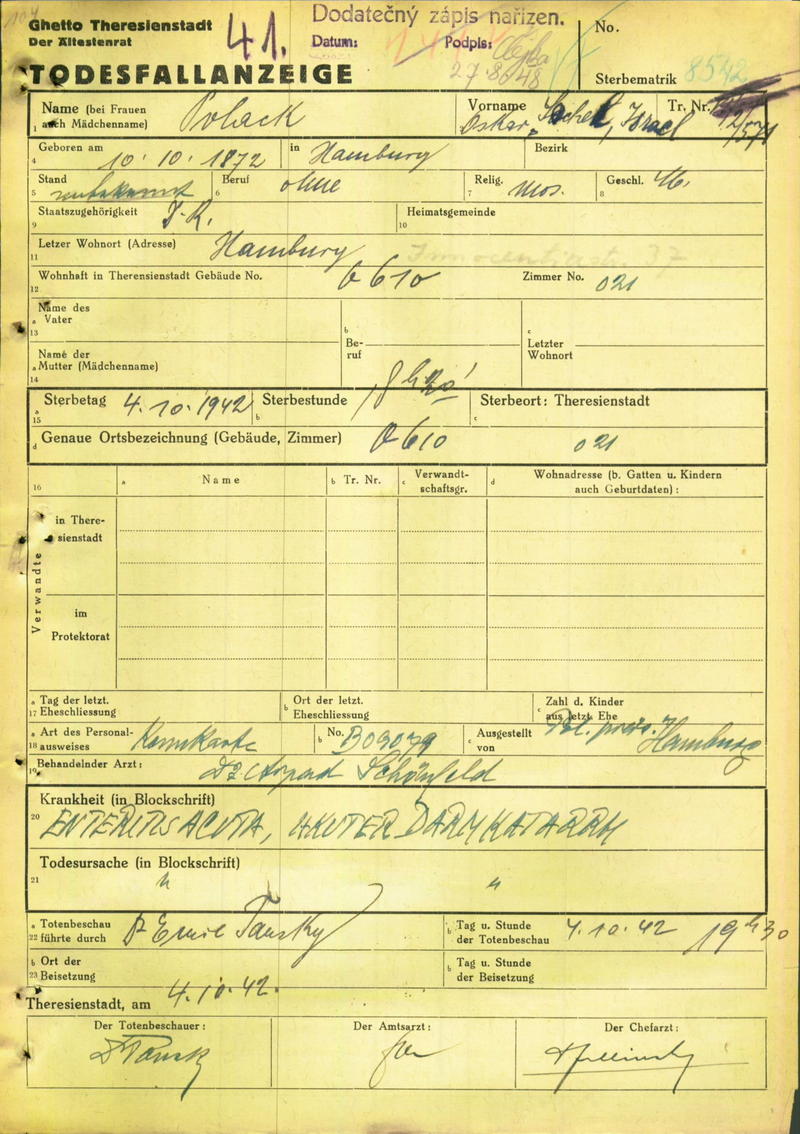 Ghetto Theresienstadt
Der Ältestenrat
41.
Dodatečný zápis nařízen.
Datum: Podpis:
27.8.48
No.
Sterbematrik 8542
TODESFALLANZEIGE
1 Name (bei Frauen auch Mädchenname) Polack
Vorname Oskar, Israel
Tr. Nr.
4 Geboren am 10. 10. 1872 in Hamburg Bezirk
5 Stand unbekannt 6 Beruf ohne 7 Relig. mos. 8 Geschl. M.
9 Staatszugehörigkeit D. R. 10 Heimatsgemeinde
11 Letzer Wohnort (Adresse) Hamburg Innocentiastr. 37
12 Wohnhaft in Theresienstadt Gebäude No. 610 Zimmer No. 021
13 a Name des Vater b Beruf c Letzter Wohnort
14 a Name der Mutter (Mädchenname)
15 a Sterbetag 4. 10. 1942 b Sterbestunde c Sterbeort: Theresienstadt
d Genaue Ortsbezeichnung (Gebäude, Zimmer) 610 021
16 a Name b Tr. Nr. c Verwandtschaftsgr. d Wohnadresse (b. Gatten u. Kindern auch Geburtdaten) :
Verwandte
in Theresienstadt
im Protektorat
17 a Tag der letzt. Eheschliessung b Ort der letzt. Eheschliessung c Zahl d. Kinder aus letzt. Ehe
18 a Art des Personalausweises Kennkarte b No. B09079 c Ausgestellt von Pol. präs. Hamburg
19 Behandelnder Arzt: Dr. Arpad Schönfeld
20 Krankheit (in Blockschrift)
ENTERITIS ACUTA, AKUTER DARMKATARRH
21 Todesursache (in Blockschrift)
" "
22 a Totenbeschau führte durch Dr Emil Tansky b Tag u. Stunde der Totenbeschau 4. 10. 42 19 h 30
23 b Ort der Beisetzung b Tag u. Stunde der Beisetzung
Theresienstadt, am 4. 10. 42.
Der Totenbeschauer: Der Amtsarzt: Der Chefarzt: